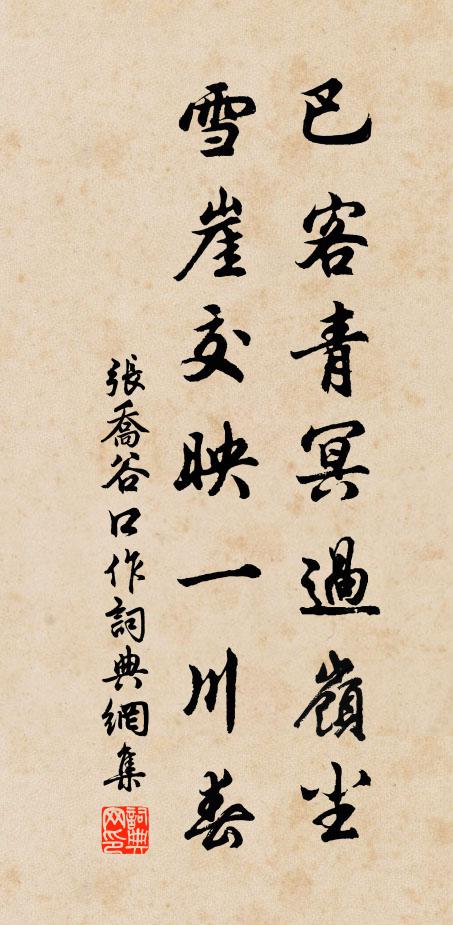 巴客青冥過嶺尘
雪崖交映一川春
張喬谷口作詞典網集
詞典网印